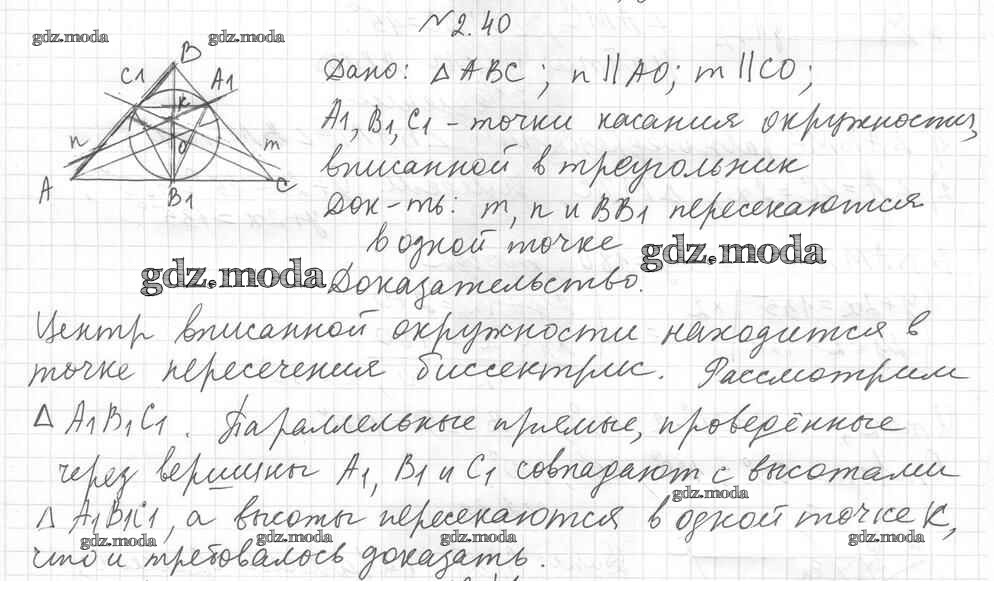 №2.40
gdz.moda gdz.moda
B
C1 A1
K
n O m
A B1 C
Дано: △ABC; n||AO; m||CO;
A1, B1, C1 - точки касания окружности,
вписанной в треугольник
Док-ть: m, n и BB1 пересекаются
в одной точке
gdz.moda gdz.moda
Доказательство.
Центр вписанной окружности находится в
точке пересечения биссектрис. Рассмотрим
△A1B1C1. Параллельные прямые, проведённые
через вершины A1, B1 и C1 совпадают с высотами
gdz.moda
△A1B1C1, а высоты пересекаются в одной точке K,
gdz.moda gdz.moda gdz.moda
что и требовалось доказать.